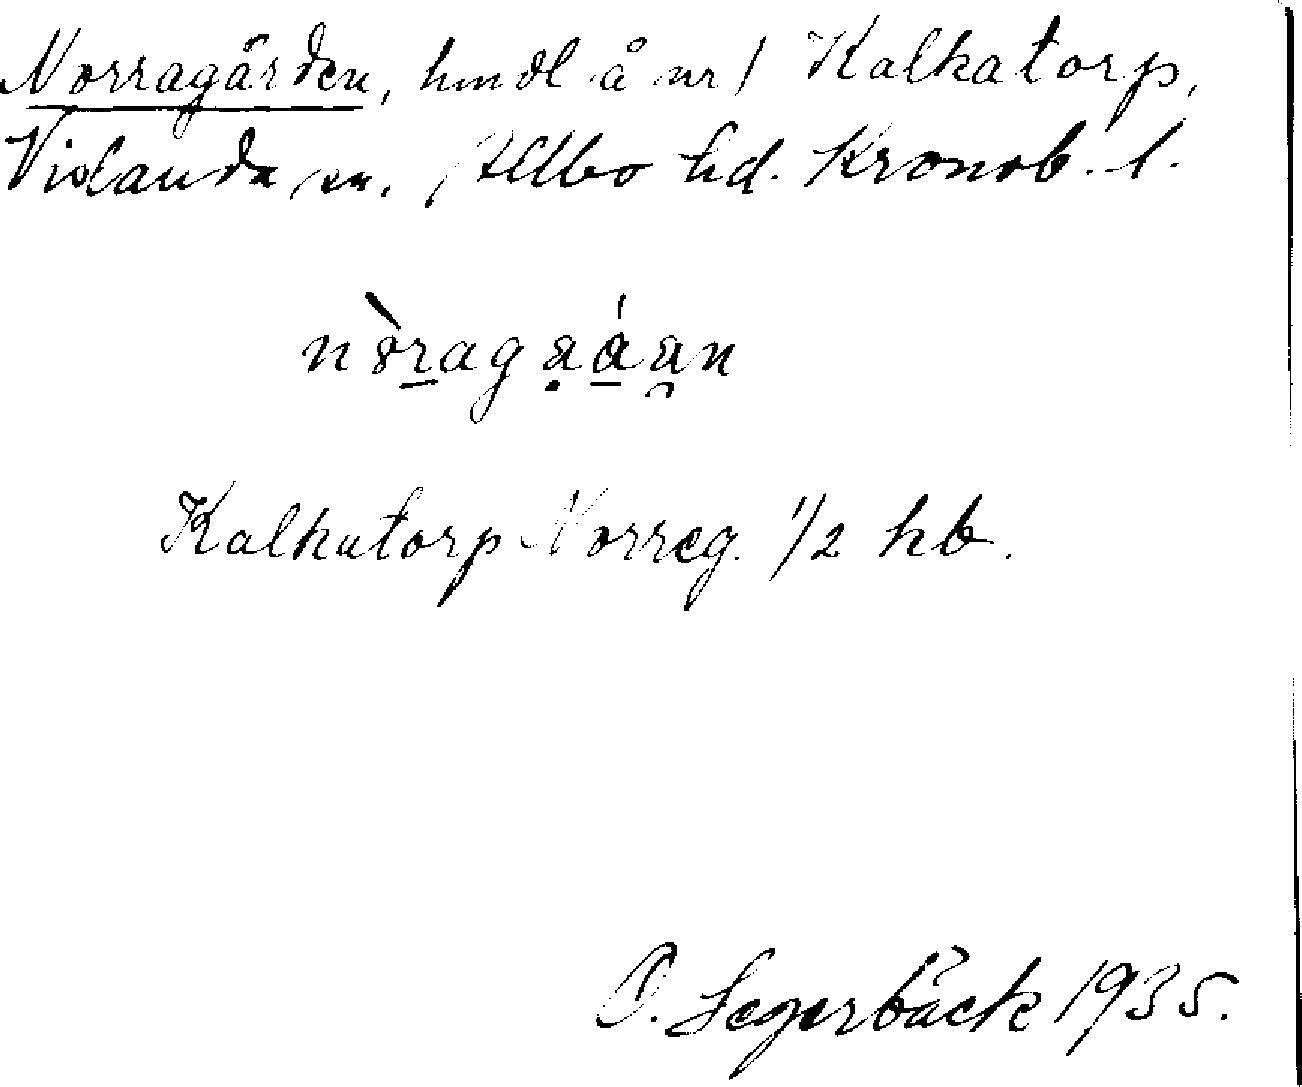 Norragården, hmdl å nr 1 Kalkatorp,
Vislanda sn. Allbo hd. Kronob. l.
nòragaáan
Kalkatorp Norreg. 1/2 hb.
O. Segerbäck 1935.